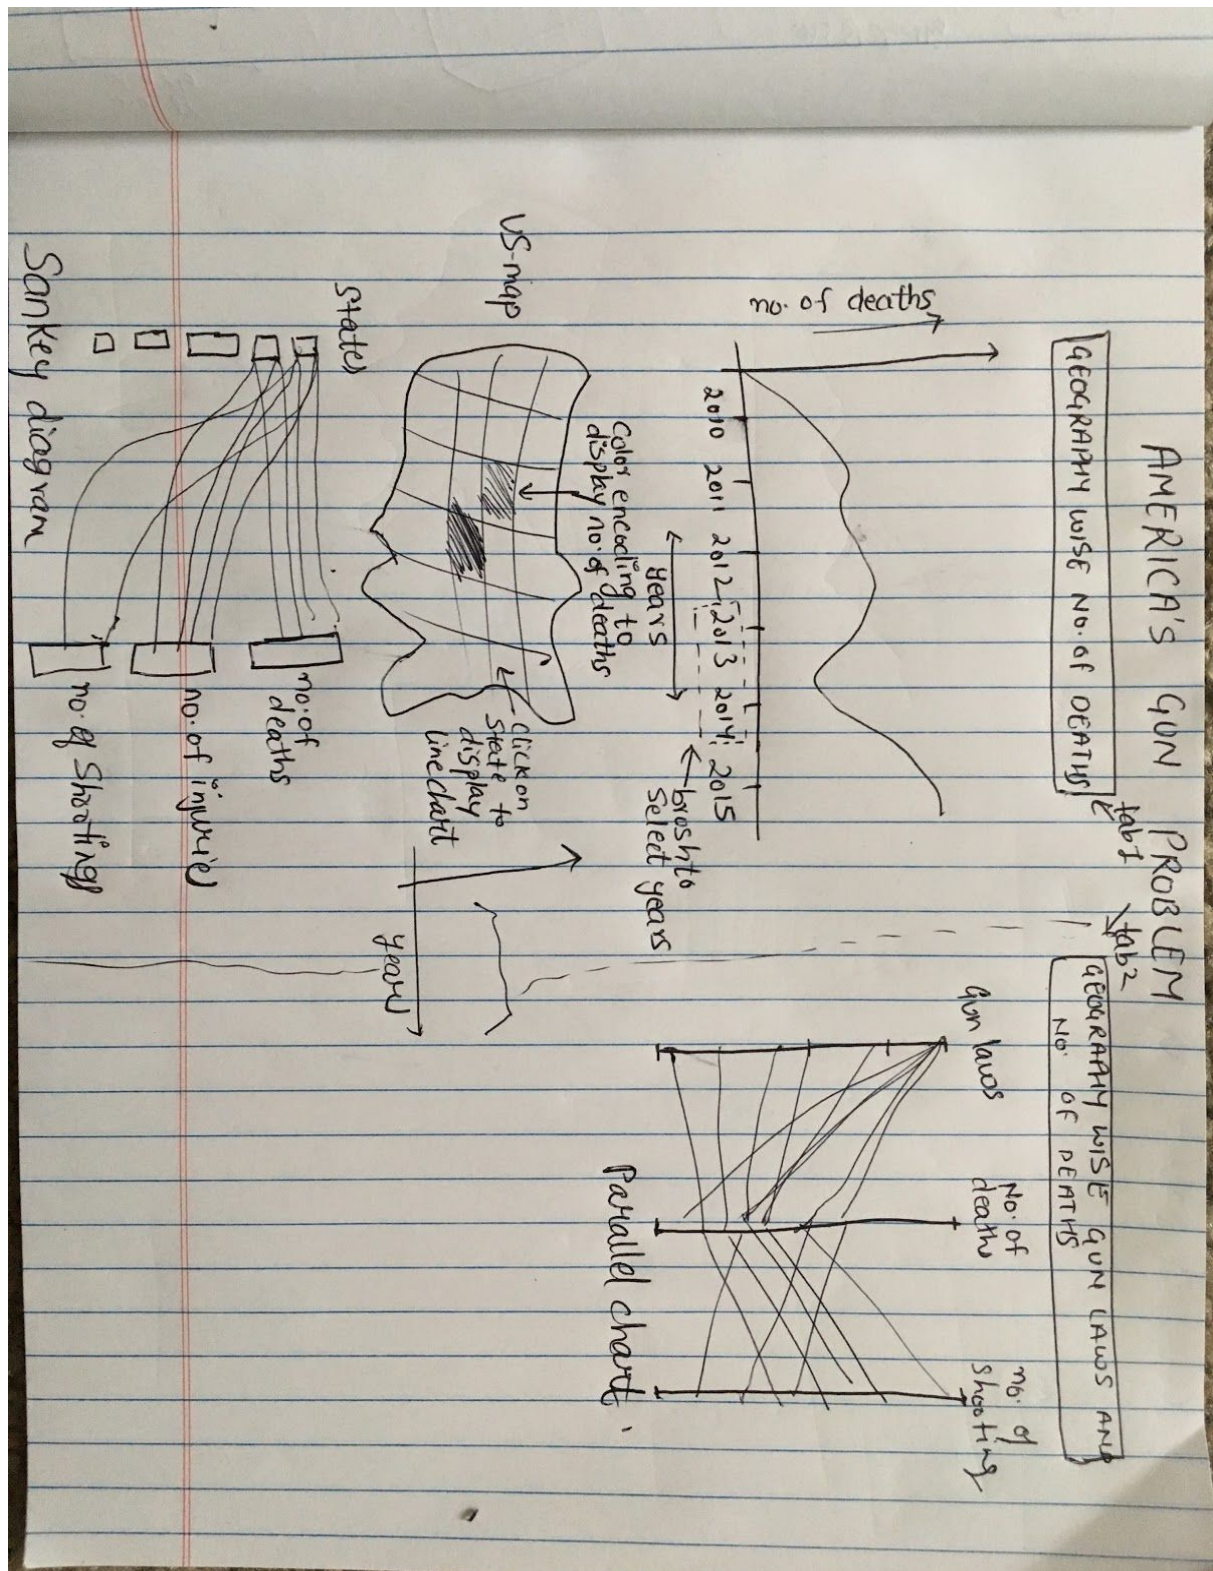 AMERICA'S GUN PROBLEM
tab1
tab2
GEOGRAPHY WISE NO. OF DEATHS
no. of deaths
2010 2011 2012 2013 2014 2015
years
brosh to
select years
US-map
Color encoding to
display no. of deaths
click on
state to
display
line chart
years
States
no. of
deaths
no. of injuries
no. of Shootings
Sankey diagram
GEOGRAPHY WISE GUN LAWS AND
NO. OF DEATHS
Gun laws
No. of
deaths
no. of
shooting
Parallel chart.